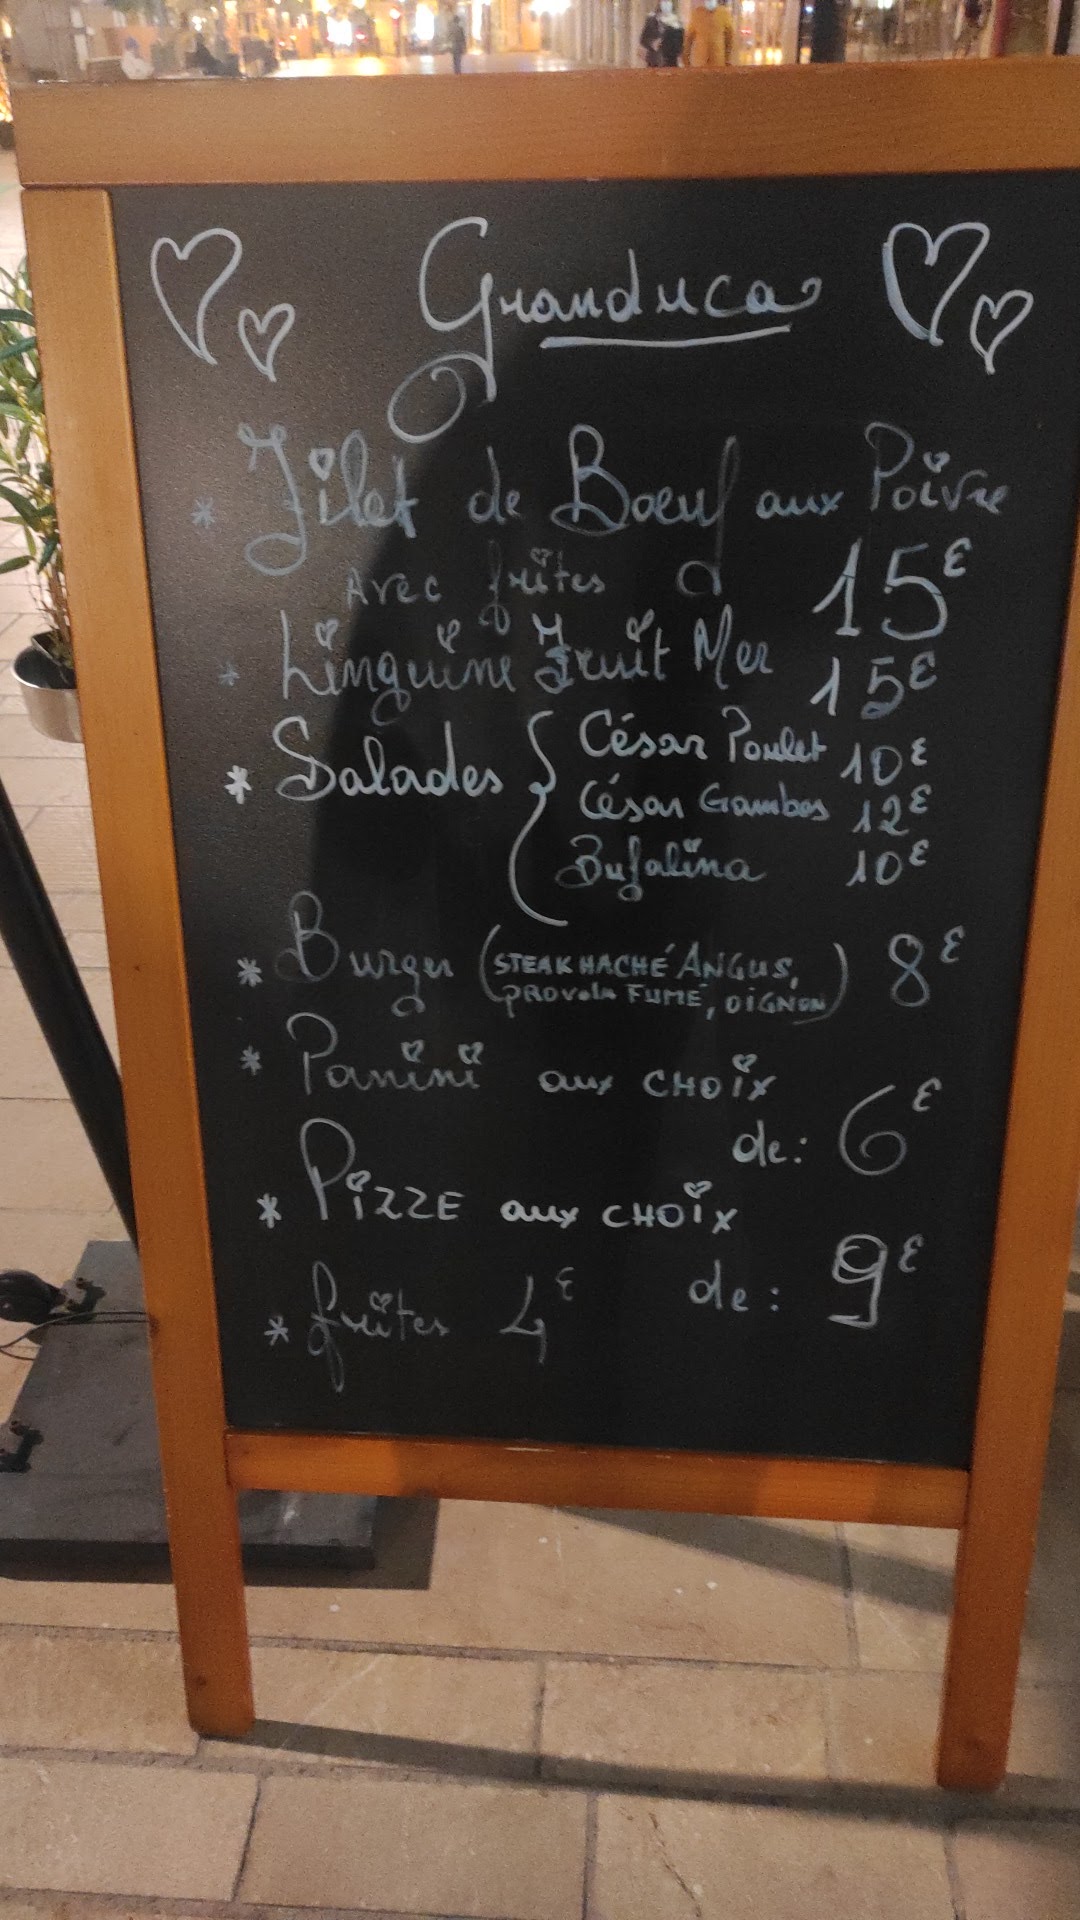 Granduca
* Filet de Boeuf aux Poivre
Avec frites 15€
* Linguine Fruit Mer 15€
* Salades { César Poulet 10€
César Gambas 12€
Bufalina 10€
* Burger (STEAK HACHÉ ANGUS, 8€
PROVOLA FUMÉ, OIGNON)
* Panini aux CHOIX
de: 6€
* PIZZE aux CHOIX
de: 9€
* frites 4€